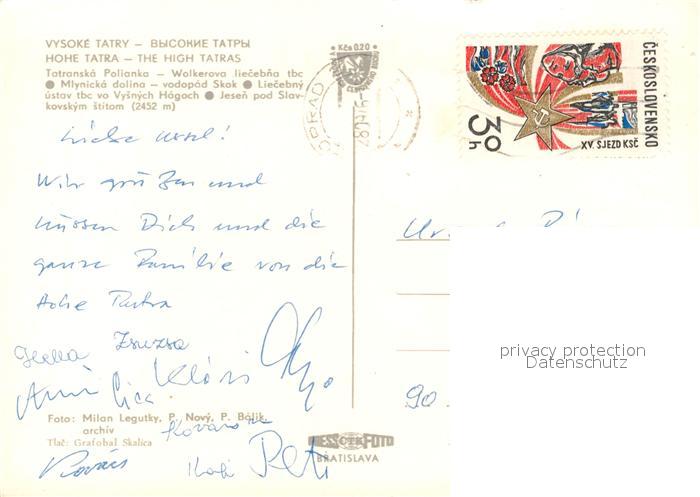 VYSOKÉ TATRY – ВЫСОКИЕ ТАТРЫ
HOHE TATRA – THE HIGH TATRAS
Tatranská Polianka – Wolkerova liečebňa tbc
● Mlynická dolina – vodopád Skok ● Liečebný
ústav tbc vo Vyšných Hágoch ● Jeseň pod Slav-
kovským štítom (2452 m)
Kčs 0,20
POPRAD
ČESKOSLOVENSKO
30
h
XV. SJEZD KSČ
Liebe Ursel!
Wir grüßen und
küssen Dich und die
ganze Familie von die
Hohe Tatra
Hella Zsuzsa
Klári
Kovács
Peti
90
Foto: Milan Legutky, P. Nový, P. Bálik,
archív
Tlač: Grafobal Skalica
PRESSFOTO
BRATISLAVA
privacy protection
Datenschutz